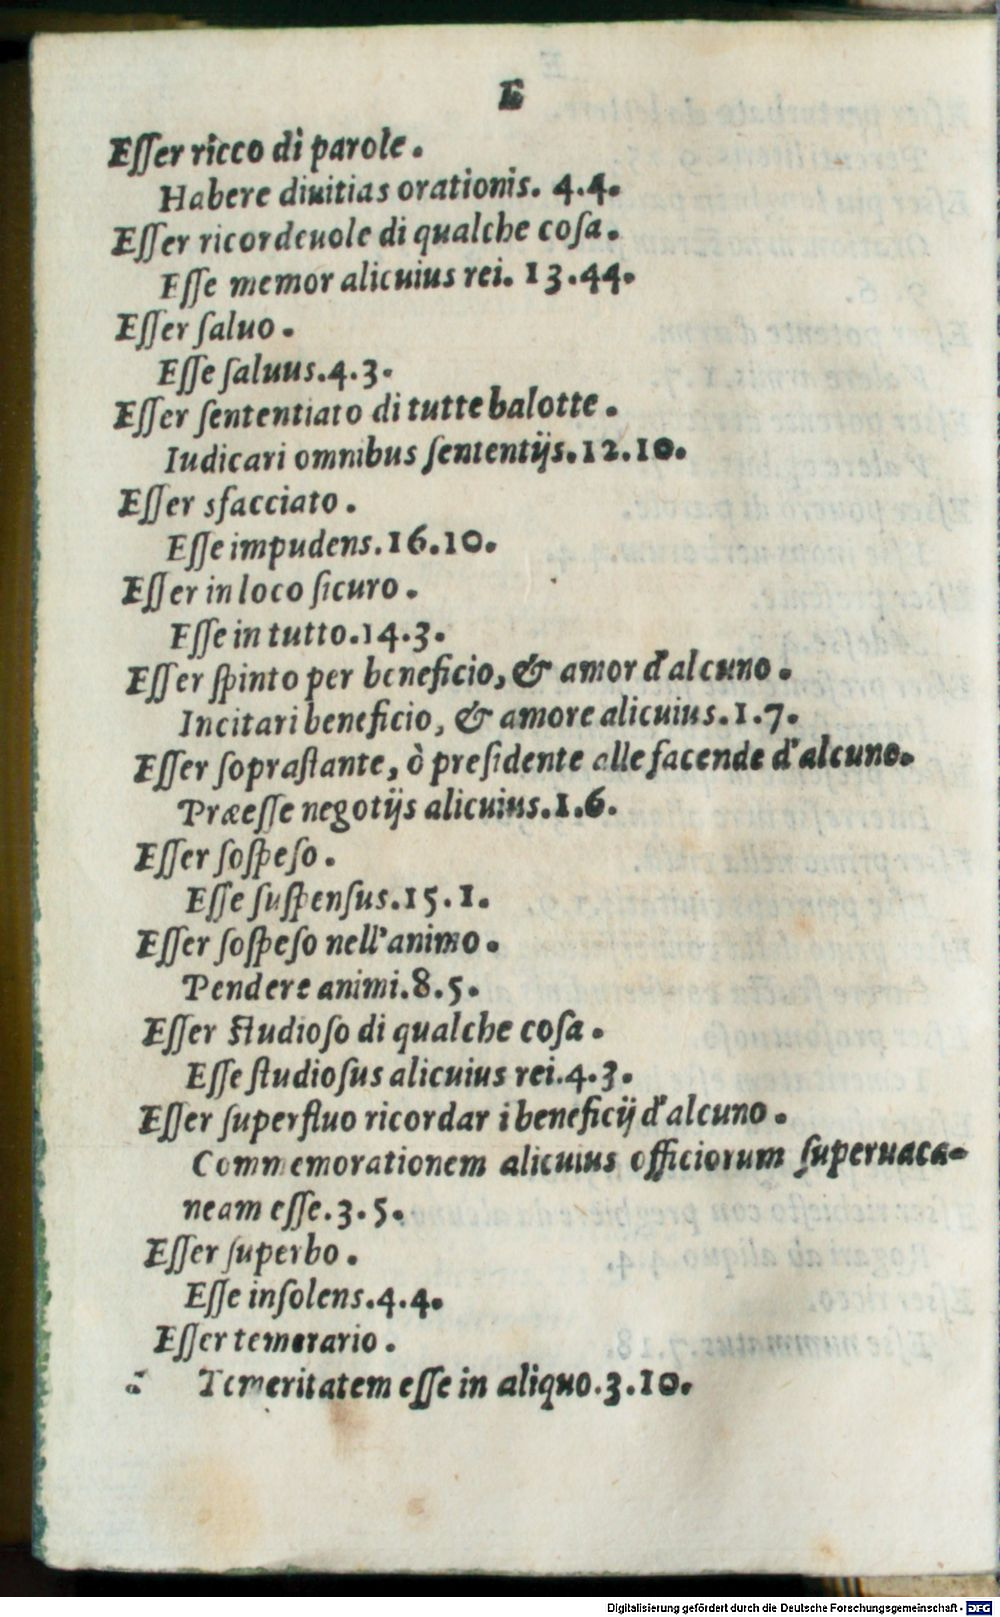 E
Eſſer ricco di parole.
Habere diuitias orationis. 4.4.
Eſſer ricordeuole di qualche coſa.
Eſſe memor alicuius rei. 13.44.
Eſſer ſaluo.
Eſſe ſaluus.4.3.
Eſſer ſententiato di tutte balotte.
Iudicari omnibus ſententijs.12.10.
Eſſer sfacciato.
Eſſe impudens.16.10.
Eſſer in loco ſicuro.
Eſſe in tutto.14.3.
Eſſer ſpinto per beneficio, & amor d'alcuno.
Incitari beneficio, & amore alicuius.1.7.
Eſſer ſopraſtante, ò preſidente alle facende d'alcuno.
Præeſſe negotijs alicuius.1.6.
Eſſer ſoſpeſo.
Eſſe ſuſpenſus.15.1.
Eſſer ſoſpeſo nell'animo.
Pendere animi.8.5.
Eſſer ſtudioſo di qualche coſa.
Eſſe ſtudioſus alicuius rei.4.3.
Eſſer ſuperfluo ricordar i beneficij d'alcuno.
Commemorationem alicuius officiorum ſuperuaca-
neam eſſe.3.5.
Eſſer ſuperbo.
Eſſe inſolens.4.4.
Eſſer temerario.
Temeritatem eſſe in aliquo.3.10.
Digitalisierung gefördert durch die Deutsche Forschungsgemeinschaft - DFG